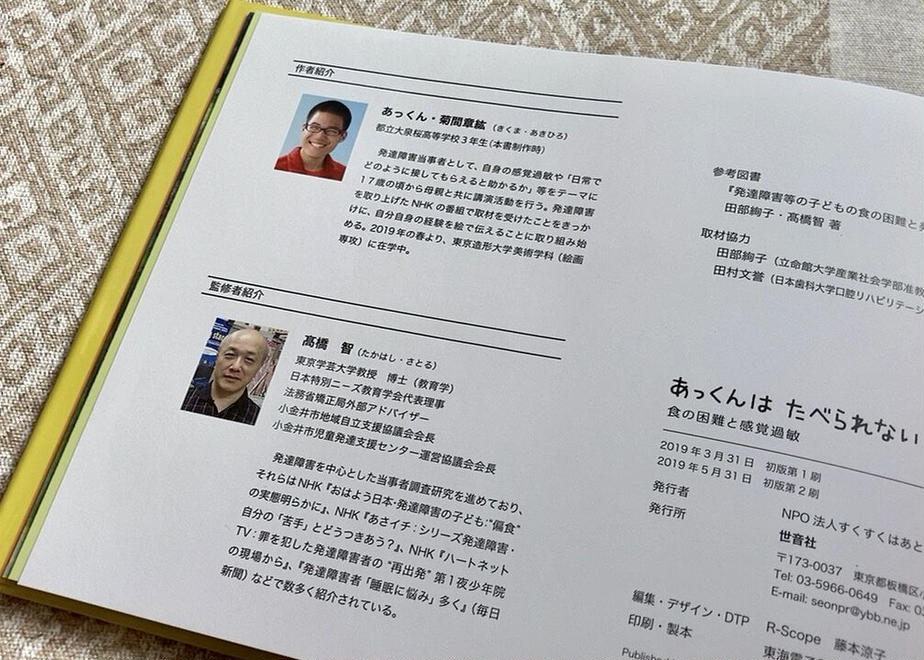 作者紹介
あっくん・菊間章紘（きくま・あきひろ）
都立大泉桜高等学校3年生(本書制作時)
発達障害当事者として、自身の感覚過敏や「日常で
どのように接してもらえると助かるか」等をテーマに
17歳の頃から母親と共に講演活動を行う。発達障害
を取り上げたNHKの番組で取材を受けたことをきっか
けに、自分自身の経験を絵で伝えることに取り組み始
める。2019年の春より、東京造形大学美術学科（絵画
専攻）に在学中。
監修者紹介
髙橋 智（たかはし・さとる）
東京学芸大学教授 博士（教育学）
日本特別ニーズ教育学会代表理事
法務省矯正局外部アドバイザー
小金井市地域自立支援協議会会長
小金井市児童発達支援センター運営協議会会長
発達障害を中心とした当事者調査研究を進めており、
それらはNHK『おはよう日本-発達障害の子ども:“偏食”
の実態明らかに』、NHK『あさイチ：シリーズ発達障害・
自分の「苦手」とどうつきあう？』、NHK『ハートネット
TV：罪を犯した発達障害者の“再出発”第1夜少年院
の現場から』、『発達障害者「睡眠に悩み」多く』（毎日
新聞）などで数多く紹介されている。
参考図書
『発達障害等の子どもの食の困難と
田部絢子・髙橋智 著
取材協力
田部絢子（立命館大学産業社会学部准教
田村文誉（日本歯科大学口腔リハビリテーシ
あっくんは たべられない
食の困難と感覚過敏
2019年3月31日 初版第1刷
2019年5月31日 初版第2刷
発行者
発行所
NPO法人すくすくはあと
世音社
〒173-0037 東京都板橋区
Tel: 03-5966-0649 Fax: 0
E-mail: seonpr@ybb.ne.jp
編集・デザイン・DTP R-Scope 藤本涼子
印刷・製本
Published